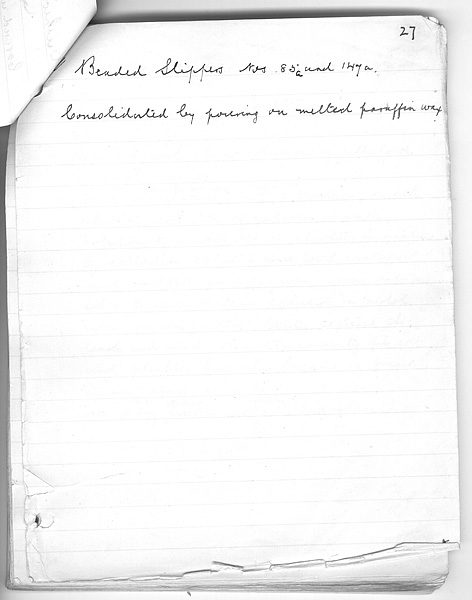 27
Beaded Slippers Nos. 85a and 147a.
Consolidated by pouring on melted paraffin wax